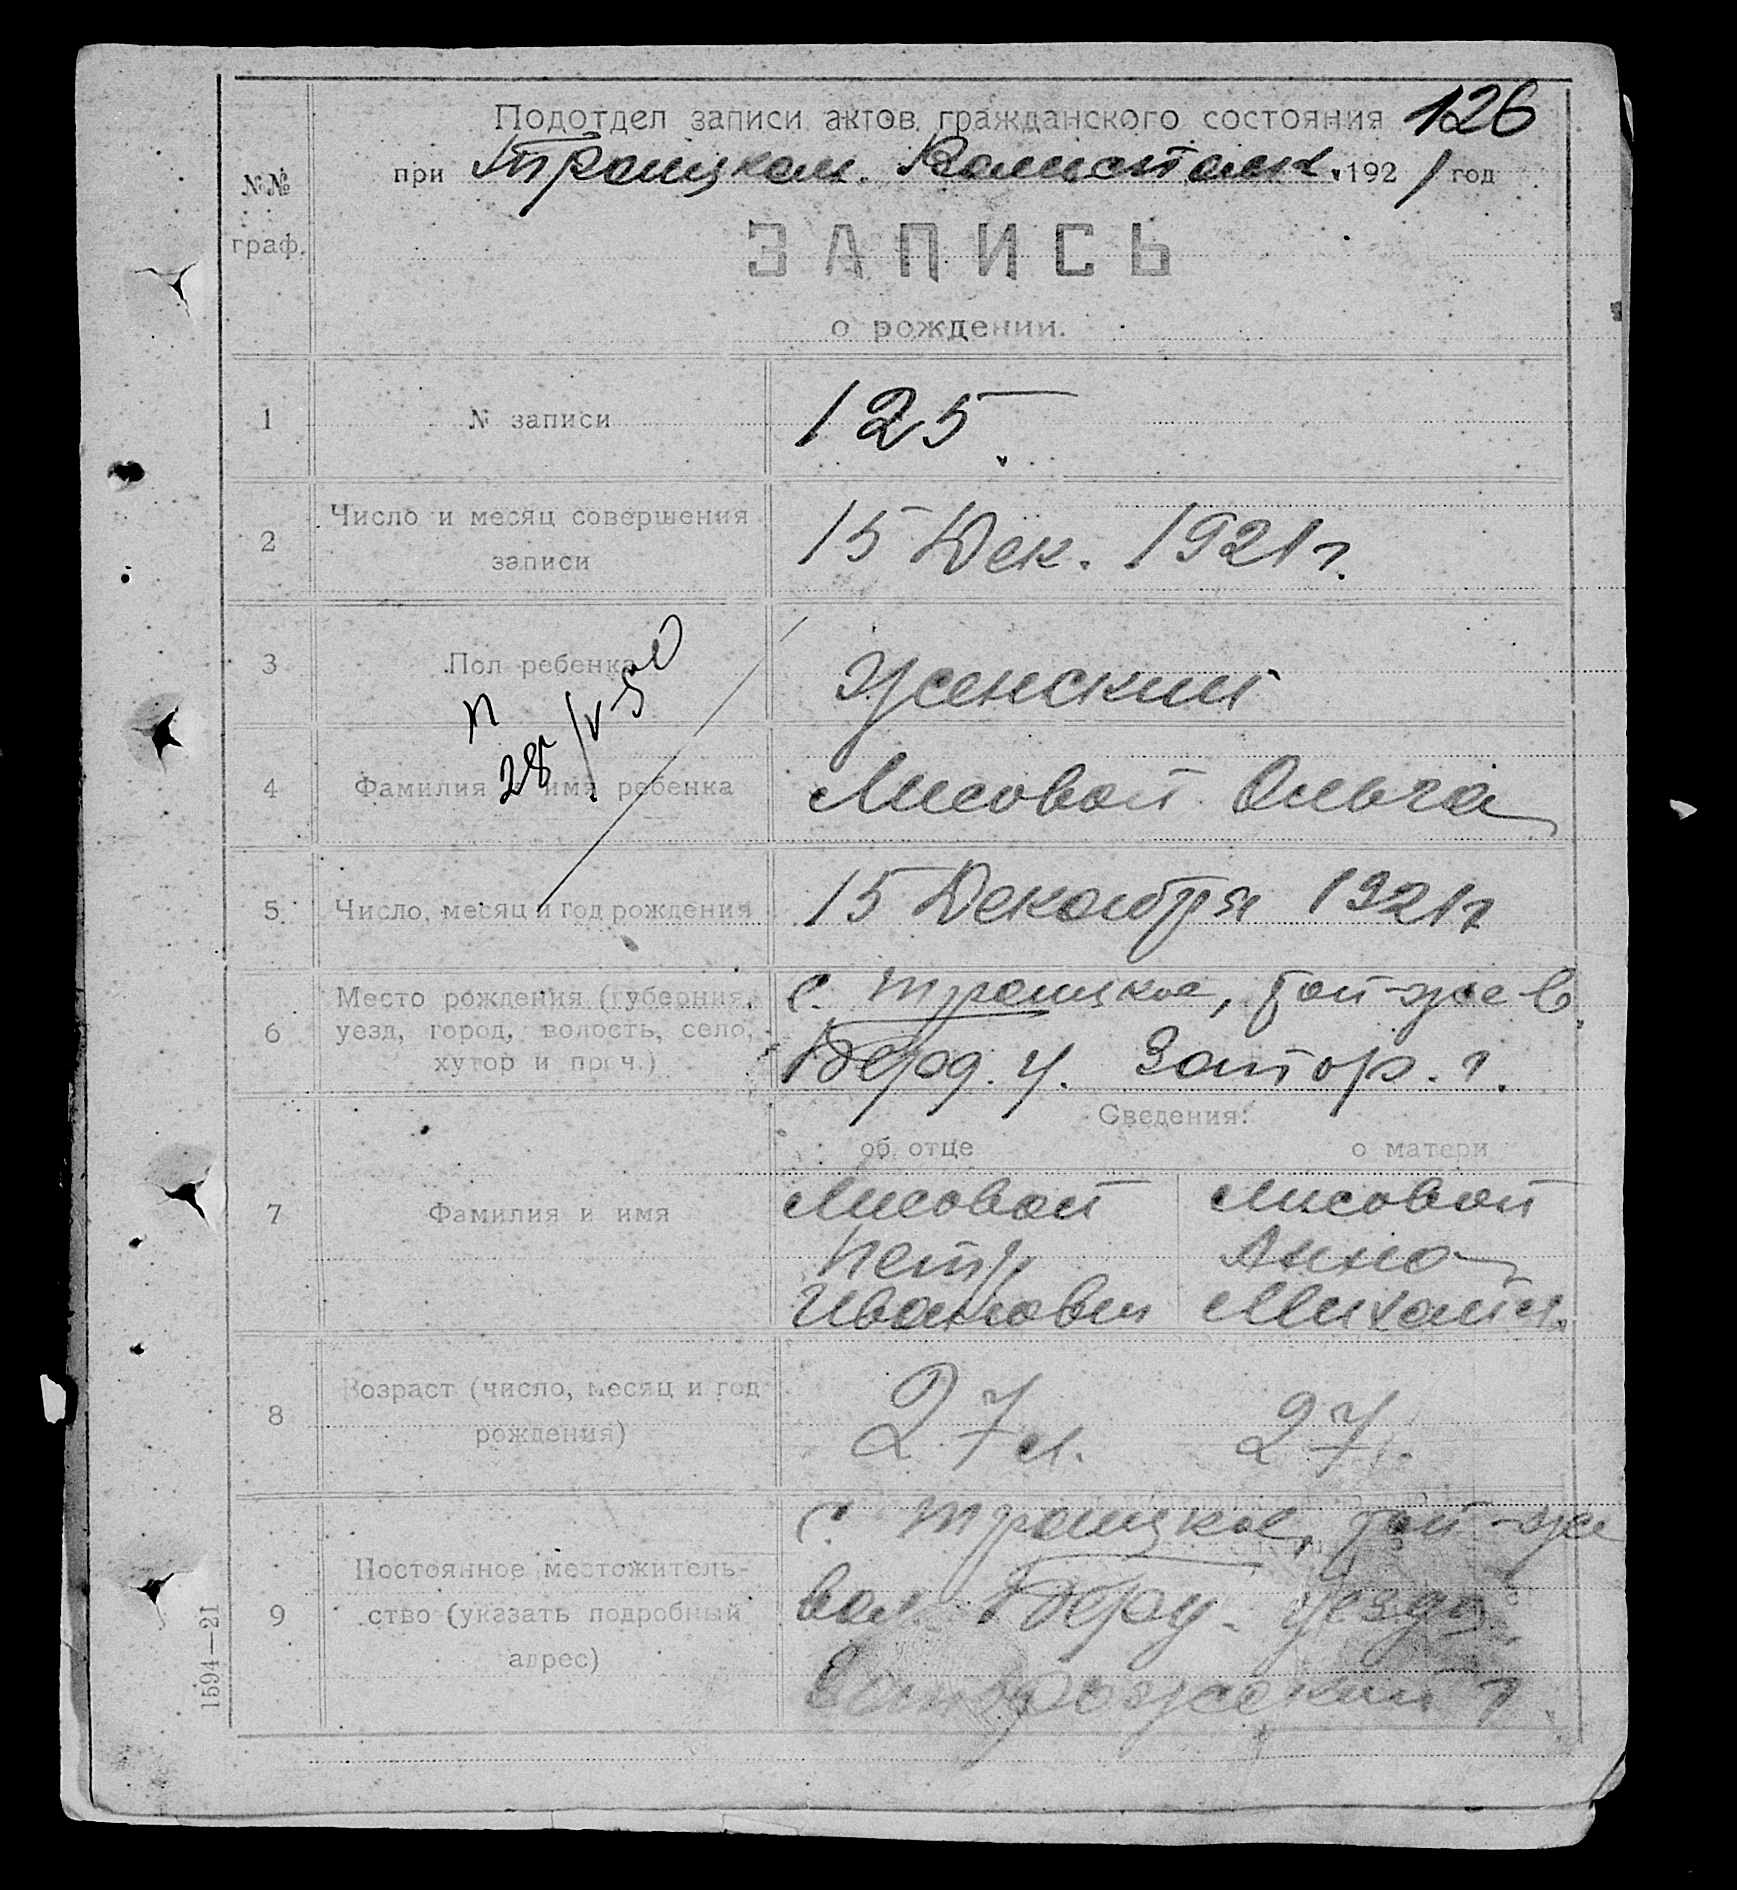 126
Подотдел записи актов гражданского состояния
при Троицком Волисполк. 1921 год
№№
граф.
ЗАПИСЬ
о рождении.
1 № записи 125
2 Число и месяц совершения
записи
15 Дек. 1921 г.
3 Пол ребенка Женский
п
28/V-50
4 Фамилия и имя ребенка Лисовой Ольга
5 Число, месяц и год рождения 15 Декабря 1921 г
6 Место рождения (губерния,
уезд, город, волость, село,
хутор и проч.)
с. Троицкое, той-же в.
Берд. у. Запор. г.
Сведения:
об отце о матери
7 Фамилия и имя
Лисовой Лисовой
Петр Анна
Иванович Михайл.
8 Возраст (число, месяц и год
рождения)
27 л. 27 л.
9 Постоянное местожитель-
ство (указать подробный
адрес)
с. Троицкое, той-же
вол. Берд. уезда
Запорожский г
1594—21